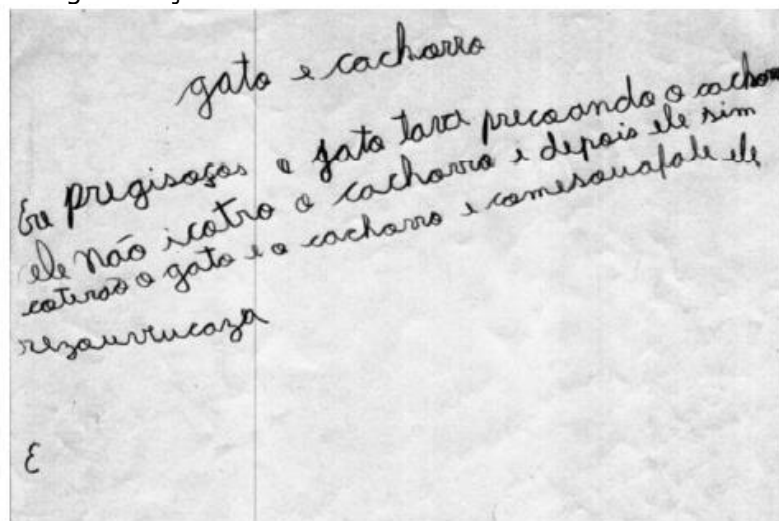 gato e cachorro
Era pregisosos o gato tava precoando o cachorro
ele não icotro o cachorro e depois ele sim
coterão o gato e o cachorro e comesouafale ele
rezouvucaza
E